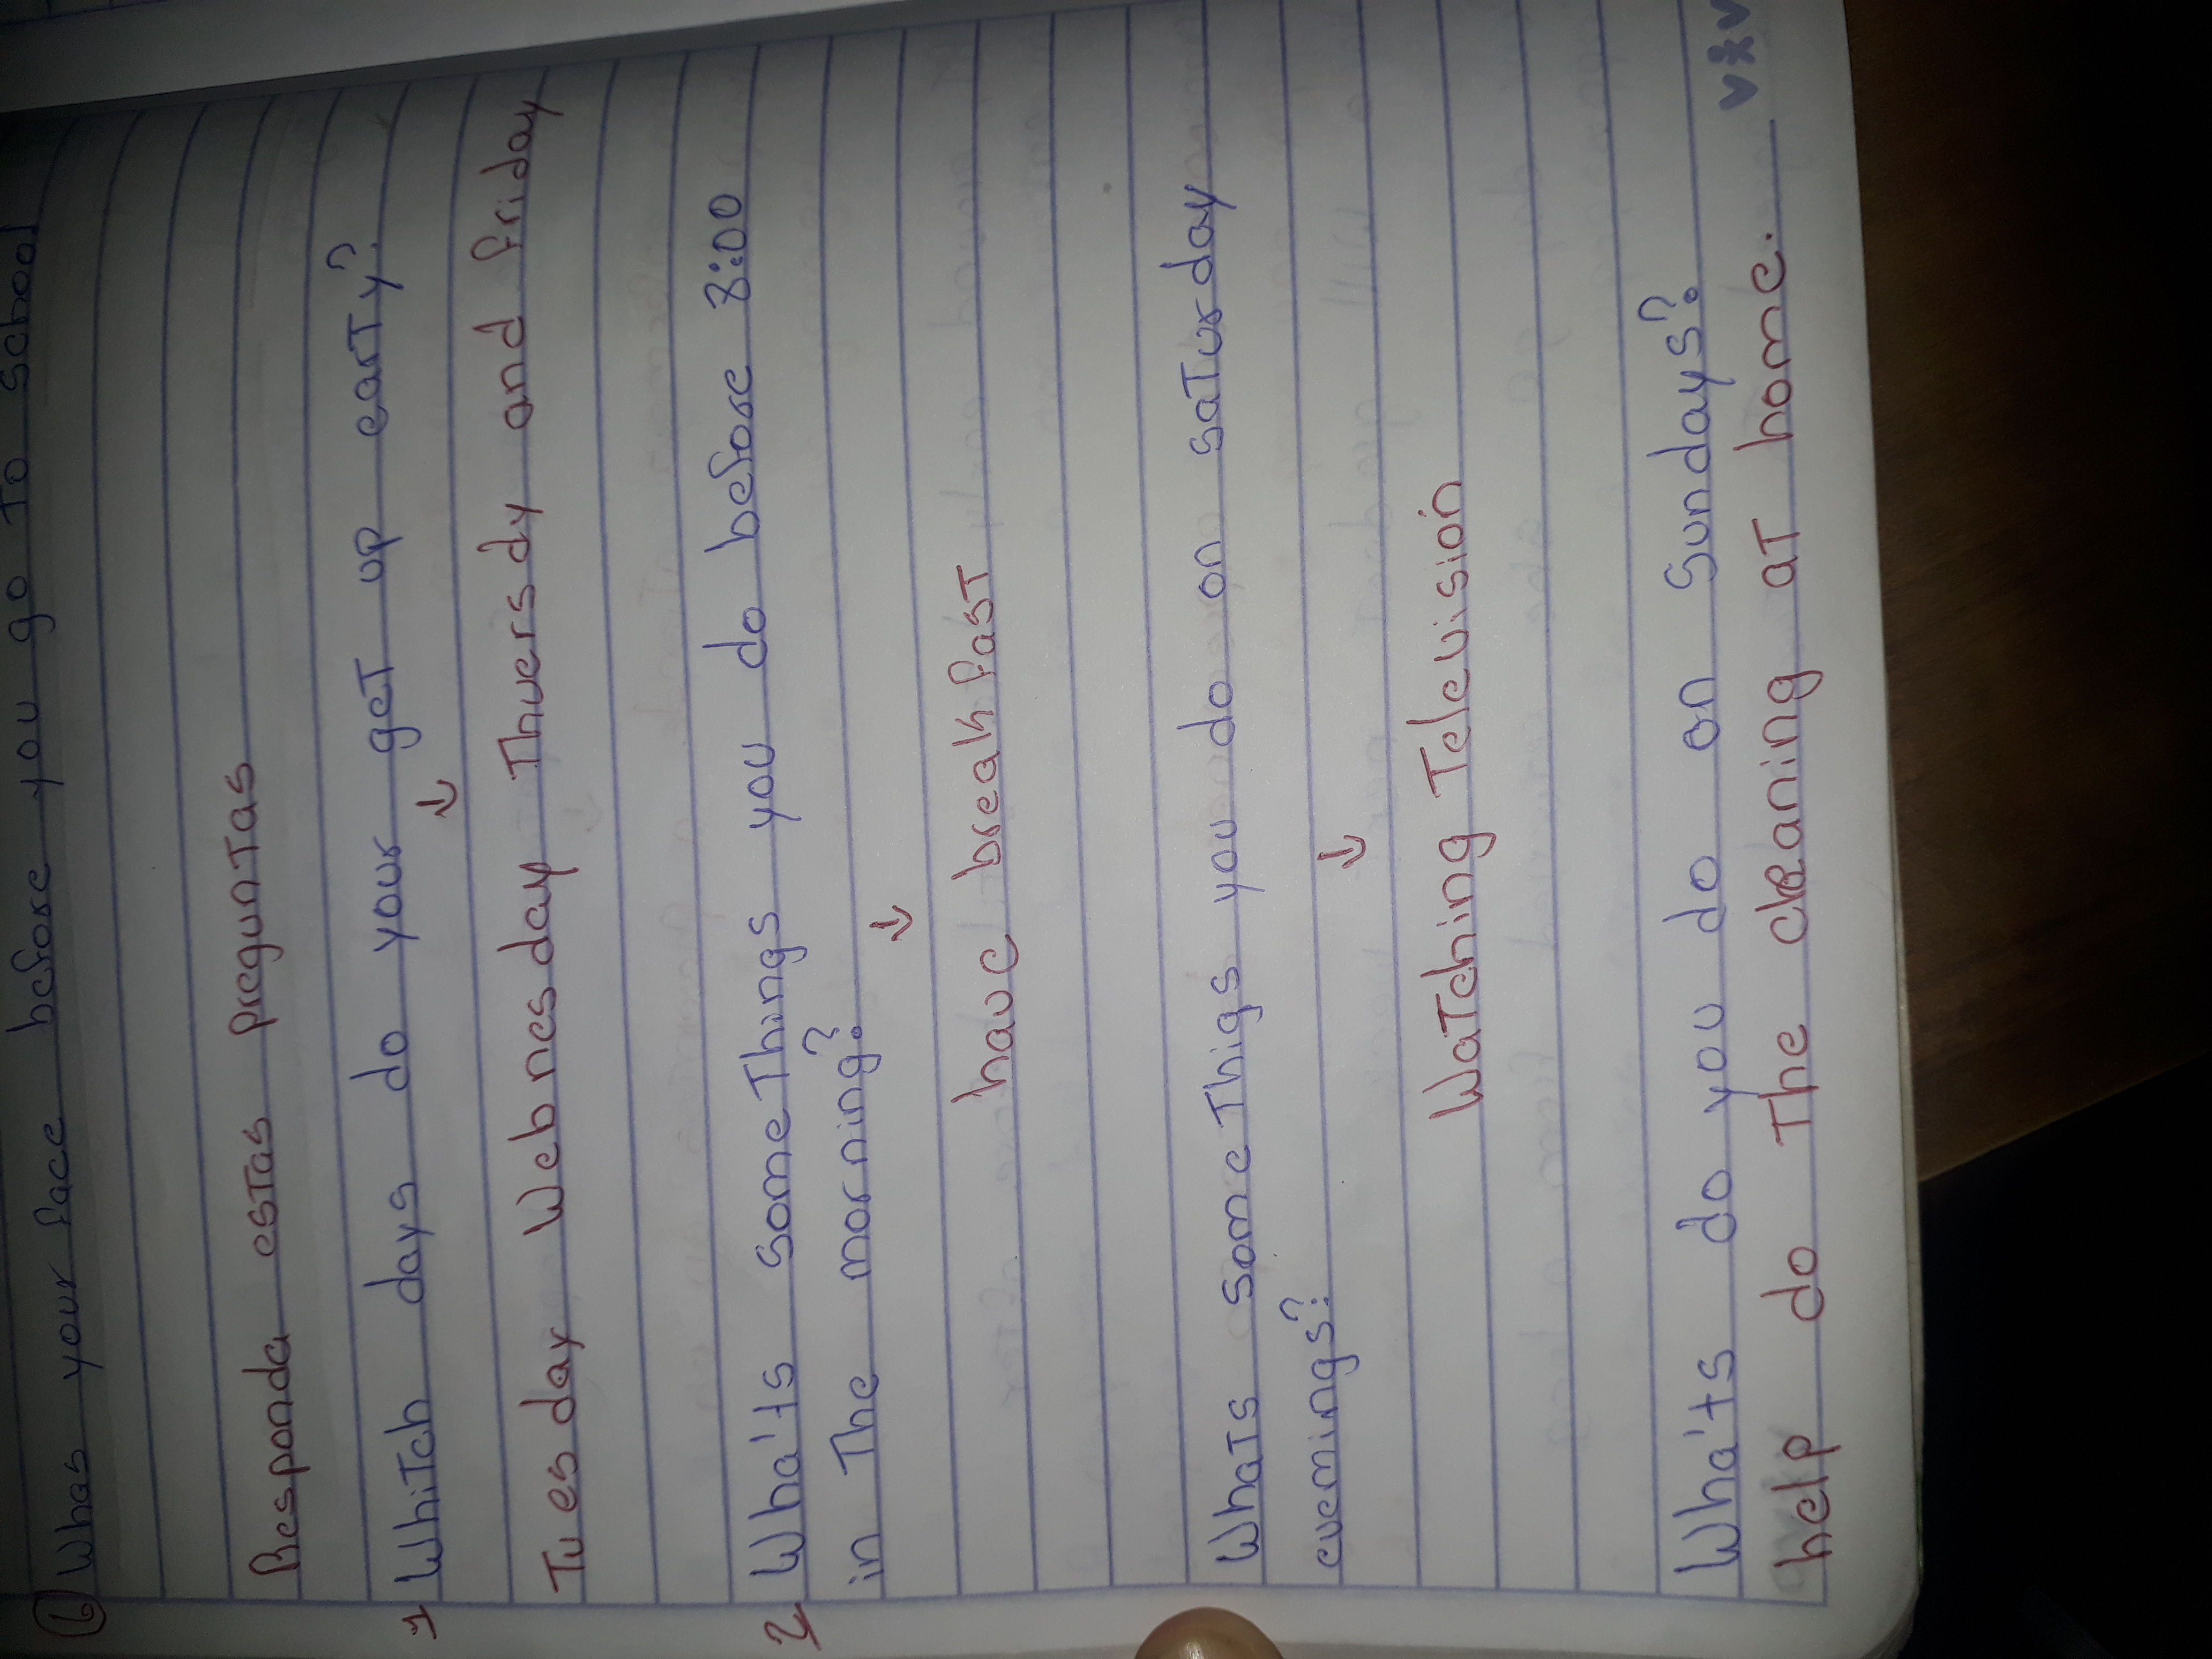 6 Whas your face before you go To school
Responda estas preguntas
1 Whitch days do your get up earTy?
Tuesday Webnesday Thuersdy and friday
2 Wha'ts someThings you do before 8:00
in The morning?
have breakfast
Whats someThigs you do on saturday
evemings?
Watching Television
Wha'ts do you do on Sundays?
help do The cleaning at home.